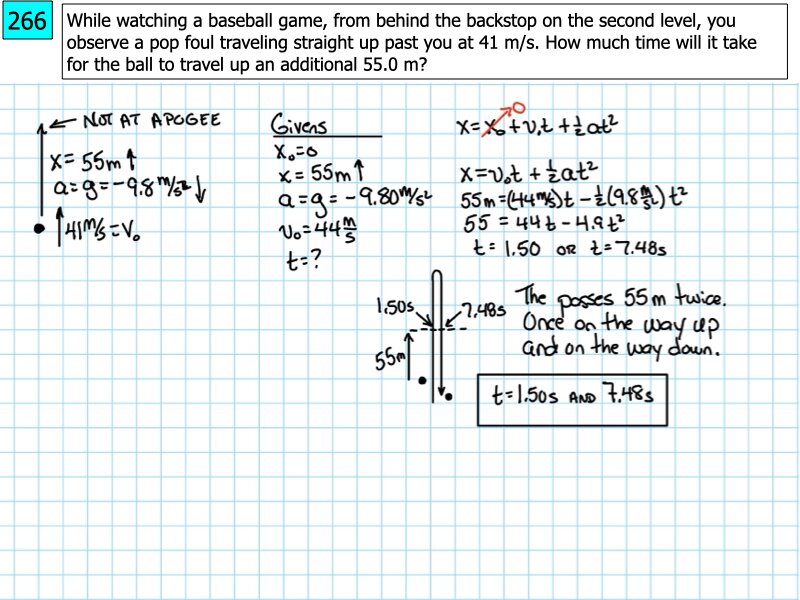 266
While watching a baseball game, from behind the backstop on the second level, you
observe a pop foul traveling straight up past you at 41 m/s. How much time will it take
for the ball to travel up an additional 55.0 m?
← NOT AT APOGEE
x = 55m ↑
a = g = -9.8 m/s² ↓
↑ 41 m/s = V₀
Givens
x₀ = 0
x = 55m ↑
a = g = -9.80 m/s²
v₀ = 44 m/s
t = ?
0
x = x₀ + v₀t + ½at²
x = v₀t + ½at²
55m = (44 m/s)t - ½(9.8 m/s²)t²
55 = 44t - 4.9t²
t = 1.50 OR t = 7.48s
1.50s
7.48s
55m
The passes 55m twice.
Once on the way up
and on the way down.
t = 1.50s AND 7.48s